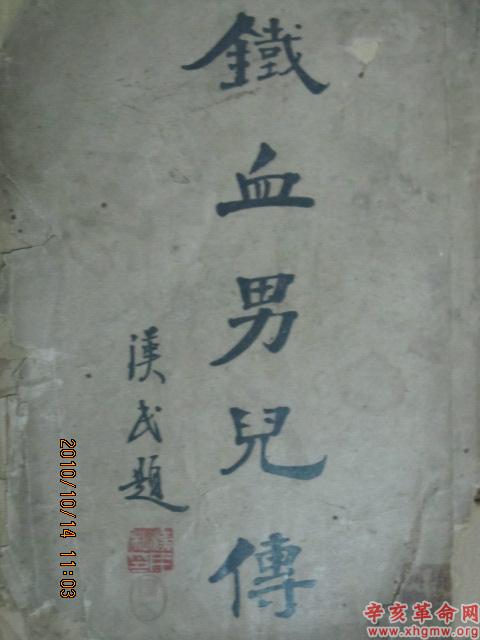 鐵血男兒傳
漢民題
2010/10/14 11:03
辛亥革命网
www.xhgmw.org